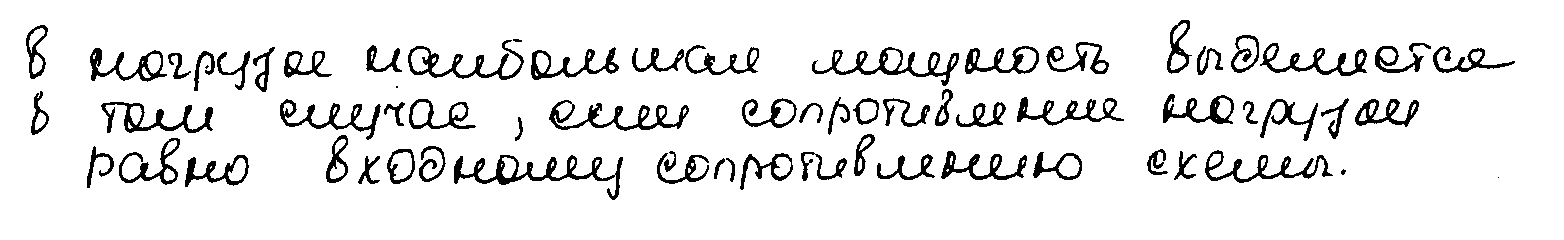 В нагрузке наибольшая мощность выделяется
в том случае, если сопротивление нагрузки
равно входному сопротивлению схемы.